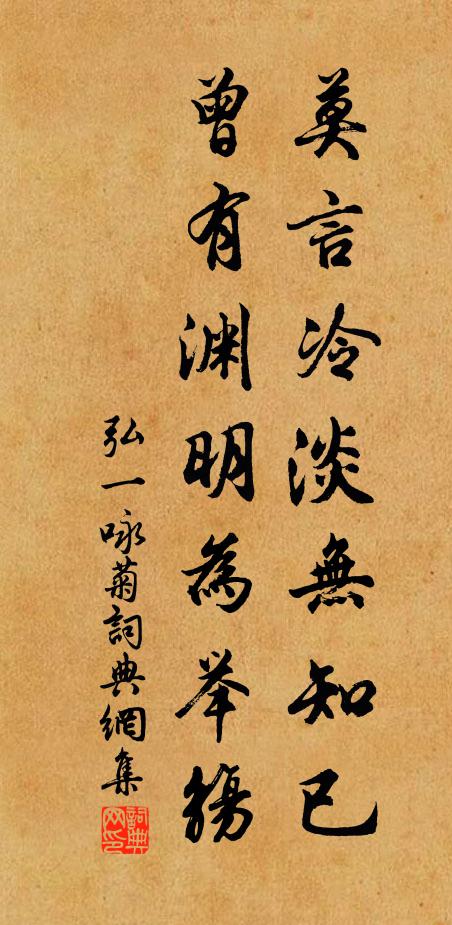 莫言冷淡無知已
曾有渊明為举觴
弘一咏菊詞典網集
詞典网印